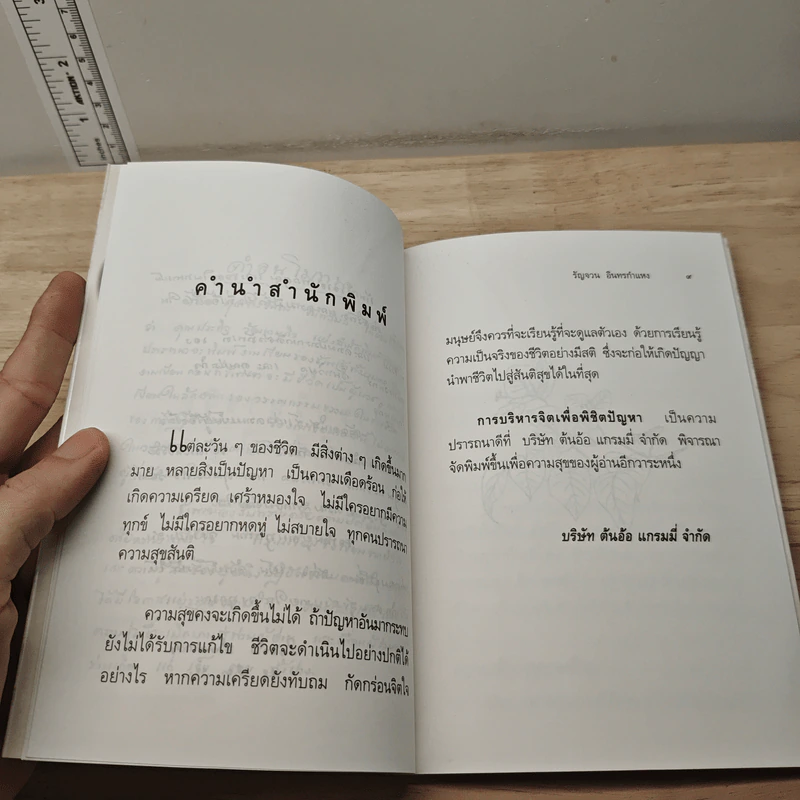 คำนำสำนักพิมพ์
แต่ละวัน ๆ ของชีวิต มีสิ่งต่าง ๆ เกิดขึ้นมาก
มาย หลายสิ่งเป็นปัญหา เป็นความเดือดร้อน ก่อให้
เกิดความเครียด เศร้าหมองใจ ไม่มีใครอยากมีความ
ทุกข์ ไม่มีใครอยากหดหู่ ไม่สบายใจ ทุกคนปรารถนา
ความสุขสันติ
ความสุขคงจะเกิดขึ้นไม่ได้ ถ้าปัญหาอันมากระทบ
ยังไม่ได้รับการแก้ไข ชีวิตจะดำเนินไปอย่างปกติได้
อย่างไร หากความเครียดยังทับถม กัดกร่อนจิตใจ
รัญจวน อินทรกำแหง ๙
มนุษย์จึงควรที่จะเรียนรู้ที่จะดูแลตัวเอง ด้วยการเรียนรู้
ความเป็นจริงของชีวิตอย่างมีสติ ซึ่งจะก่อให้เกิดปัญญา
นำพาชีวิตไปสู่สันติสุขได้ในที่สุด
การบริหารจิตเพื่อพิชิตปัญหา เป็นความ
ปรารถนาดีที่ บริษัท ต้นอ้อ แกรมมี่ จำกัด พิจารณา
จัดพิมพ์ขึ้นเพื่อความสุขของผู้อ่านอีกวาระหนึ่ง
บริษัท ต้นอ้อ แกรมมี่ จำกัด
1
2
3
ACTION
INCHES